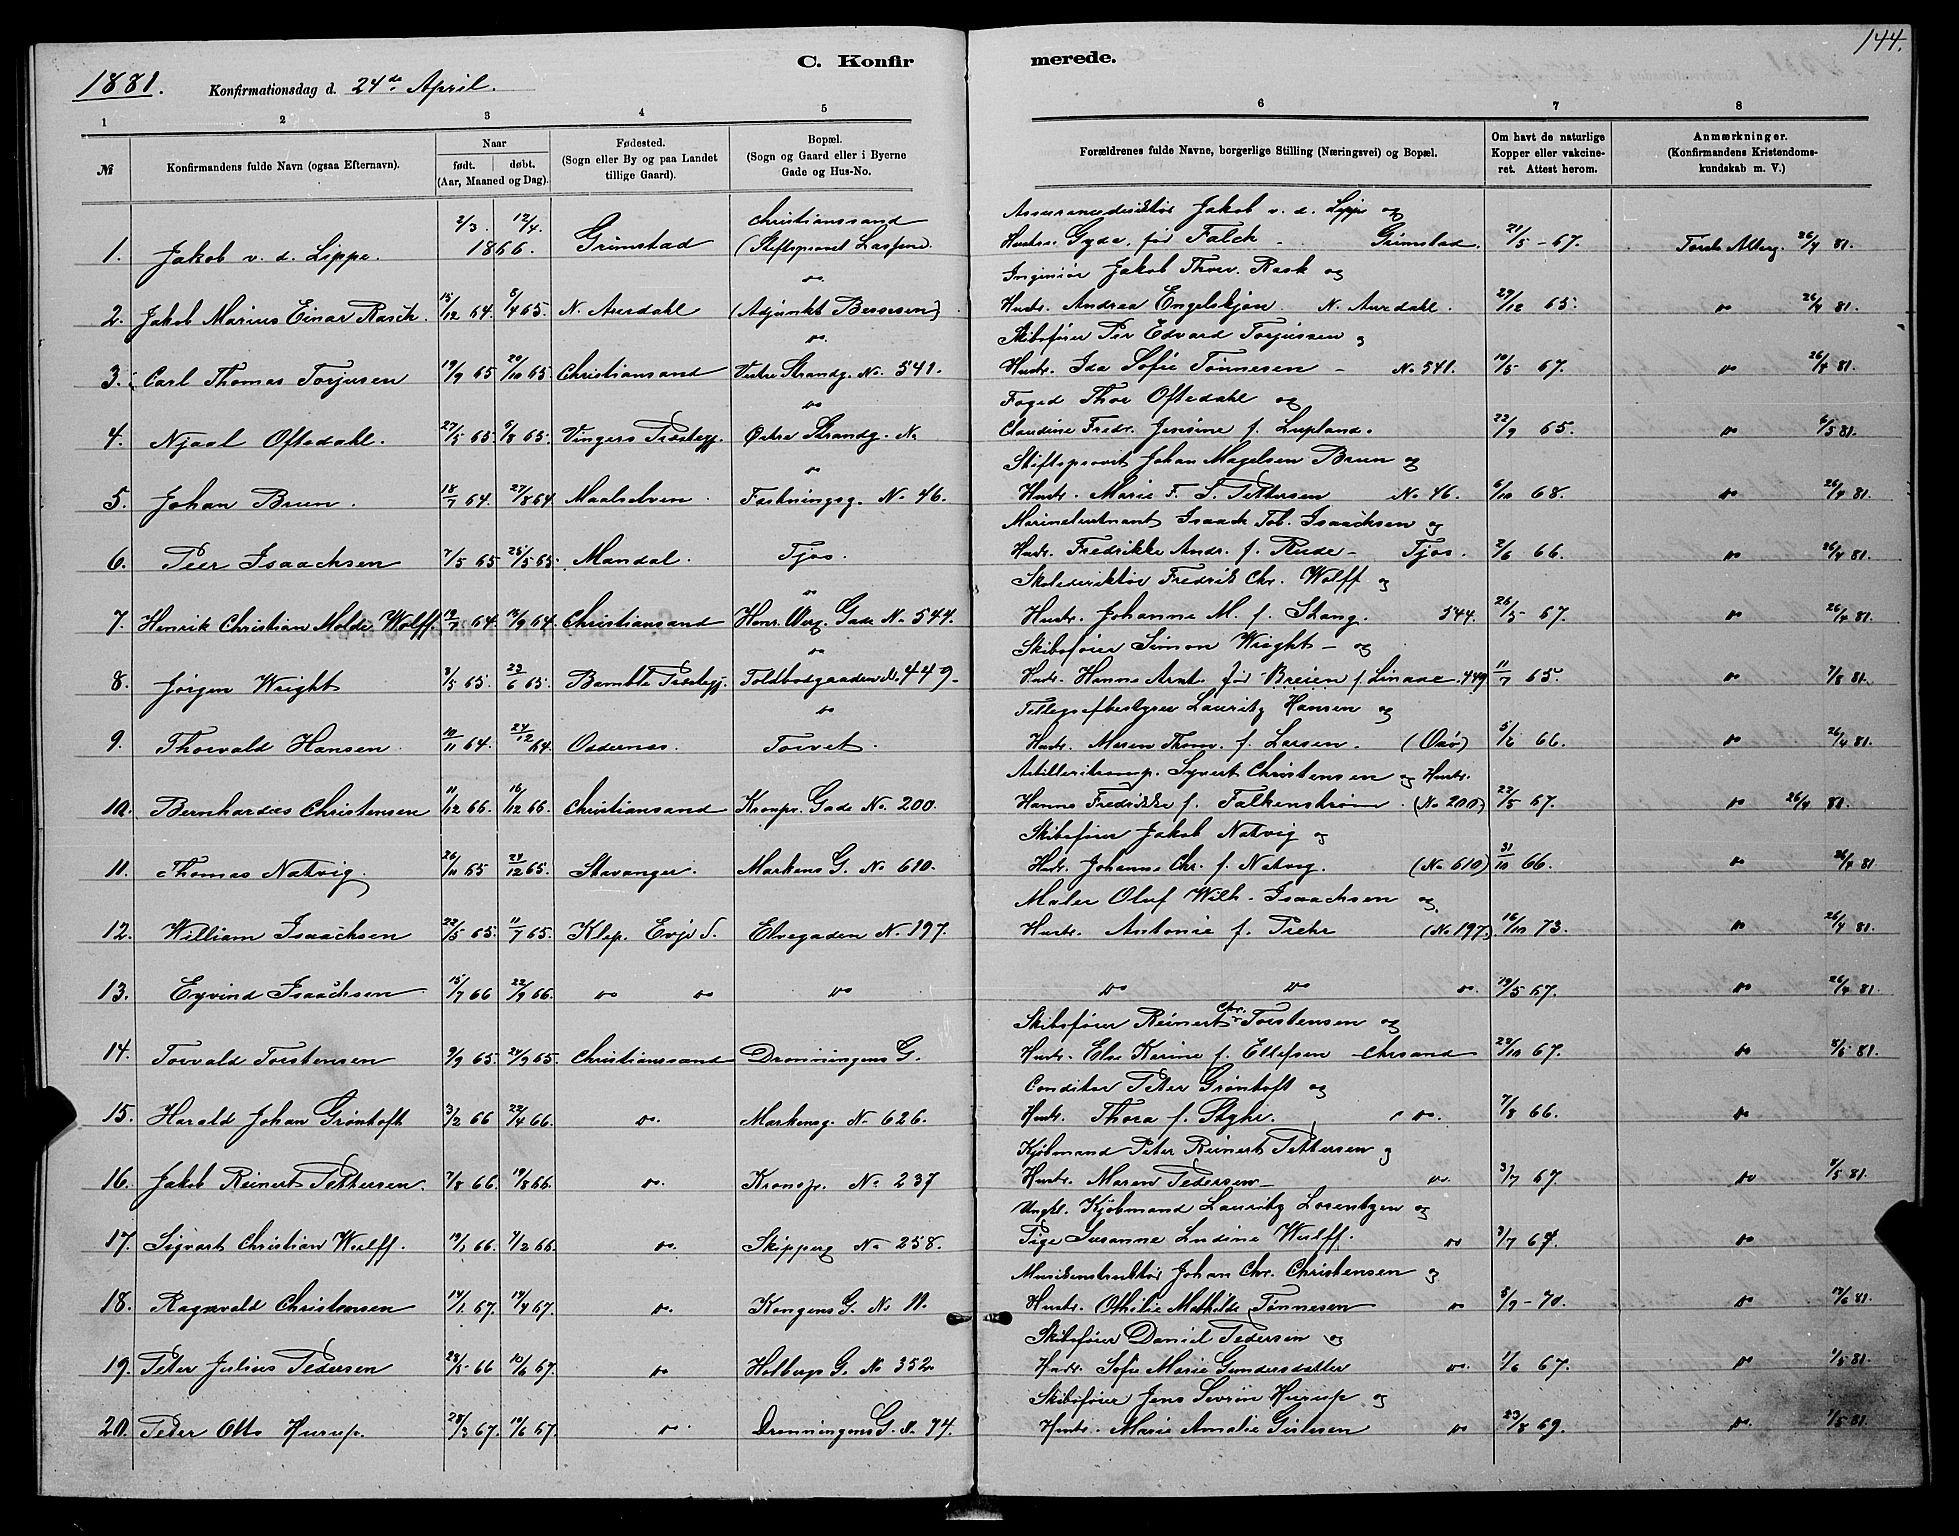 144.
C. Konfirmerede.
1881. Konfirmationsdag d. 24de April.
1 2 3 4 5 6 7 8
№ Konfirmandens fulde Navn (ogsaa Efternavn). Naar født. døbt. (Aar, Maaned og Dag). Fødested. (Sogn eller By og paa Landet tillige Gaard). Bopæl. (Sogn og Gaard eller i Byerne Gade og Hus-No. Forældrenes fulde Navne, borgerlige Stilling (Næringsvei) og Bopæl. Om havt de naturlige Kopper eller vakcineret. Attest herom. Anmærkninger. (Konfirmandens Kristendomskundskab m. V.)
2/3. 12/4. Christianssand Jakob v. d. Lippe og
1. Jakob v. d. Lippe. 1866. Grimstad (Stiftsprovst Hustru Gyda, før Falck - Grimstad. 21/5 - 67. 26/4 81.
do Ingeniør Jakob Thor. Rask og
2. Jakob Marius Einar Rasch. 15/12 64. 8/4 65. N. Aurdahl (Adjunkt Bessesen) Hustr. Andrea Engelskjøn N. Aurdahl. 29/12 65. do 26/4 81.
do. Skibsfører Per Edvard Torjussen og
3. Carl Thomas Torjusen 19/9 65 20/10 65. Christiansand Vestre Strandg. No. 541. Hustr. Ida Sofie Tønnesen - No 541. 10/5 67. do 26/4 81.
do Foged Thor Oftedahl og
4. Njaal Oftedahl. 27/5 65. 9/8 65. Vingers Præstegj. Østre Strandg. No Claudine Fredr. Jensine f. Lupland. 22/9 65. do 6/5 81.
do Stiftsprovst Johan Magelsen Brun og
5. Johan Brun. 18/7 64. 27/8 64. Maalselven. Fæstningsg. No 46. Hustr. Marie F. S. Pettersen No 46. 6/10 68. do 26/4 81.
Marinelieutnant Isaach Tob. Isaachsen og
6. Peer Isaachsen 7/5 65 25/5 65. Mandal. Tjos. Hustr. Fredrikke Andr. f. Rude - Tjos. 2/6 66. do 26/4 81.
do Skoledirektør Fredrik Chr. Wolff og
7. Henrik Christian Molde Wolff. 64. 64. Christiansand Henr. Gade No 544. Hustr. Johanne M. f. Stang. 544. 26/5 - 67. do 26/4 81.
do Skibsfører Simon Wright - og
8. Jørgen Wright 3/5 65. 23/6 65. Bamble Præstegj. Toldbodgaaden No. 449 - Hustr. Hanna før Breien f. Linaae. 449 11/7 65. do 7/8 81.
do Lauritz Hansen og
9. Thorvald Hansen. 10/11 64. 24/12 64. Oddernes. Torvet. Hustr. Maren Thom. f. Larsen. 5/6 66. do 26/4 81.
Syvert Christensen og Hustr.
10. Bernhardus Christensen 11/12 66. 16/12 66. Christiansand Kronpr. Gade No. 200. Hanna Fredrikke f. Falkenstrøm. (No 200) 22/5 67. do 26/4 81.
Skibsfører Jakob Natvig og
11. Thomas Natvig. 26/11 65 29/12 65. Stavanger. Markens G. No 610. Hustr. Johanna Chr. f. Natvig. (No 610) 31/10 66. do 26/4 81
Maler Oluf Wilh. Isaachsen og
12. William Isaachsen 22/5 65. 11/7 65. Klep. Evje S. Elvegaden No 197. Hustr. Antonie f. (No 197). 16/10 73. do 26/4 81.
13. Eyvind Isaachsen 15/7 66 22/9 66. do do do do do do. 19/5 67. do 26/4 81.
Skibsfører Reinert Chr. Torstensen og
14. Torvald Torstensen 9/9 65. 24/9 65. Christianssand Dronningens G. Hustr. Else Karine f. Ellefsen - Chrsand 22/10 67. do 8/5 81.
Conditor Peter Grøntoft og
15. Harald Johan Grøntoft 3/2 66 22/4 66. do. Markensg. No 626. Hustr. Thora f. do. 7/8 66. do
Kjøbmand Peter Reinert Pettersen og
16. Jakob Reinert Pettersen. 7/8 66. 19/8 66. do. Kronspr. No 237 Hustr. Maren Pedersen - do. 3/7 67. do 8/5 81.
Ungkl. Kjøbmand Lauritz Lorentzen og
17. Sigvart Christian Wulff. 19/1 66. 7/2 66. do. Skipperg. No 258. Pige Susanne Ludine Wulff. do 3/7 67. do
Johan Chr. Christensen og
18. Ragnvald Christensen 14/1. 67. 19/4 67. do. Kongens G. No 11. Hustr. Othilie Mathilde Tønnesen do 8/9 - 70. do 19/6 81.
Skibsfører Daniel Pedersen og
19. Peter Julius Pedersen 28/5 - 66 10/6 67. do Holbergs G. No 352 Hustr. Sofie Marie Gundersdatter do. 1/6 67. do 1/5 81.
Skibsfører Jens Sevrin Hurup og
20. Peter Otto Hurup. 28/3 67. 19/6 67. do Dronningens G. No. 74. Hustr. Marie Amalie do 23/8 69. do. 1/5 81.